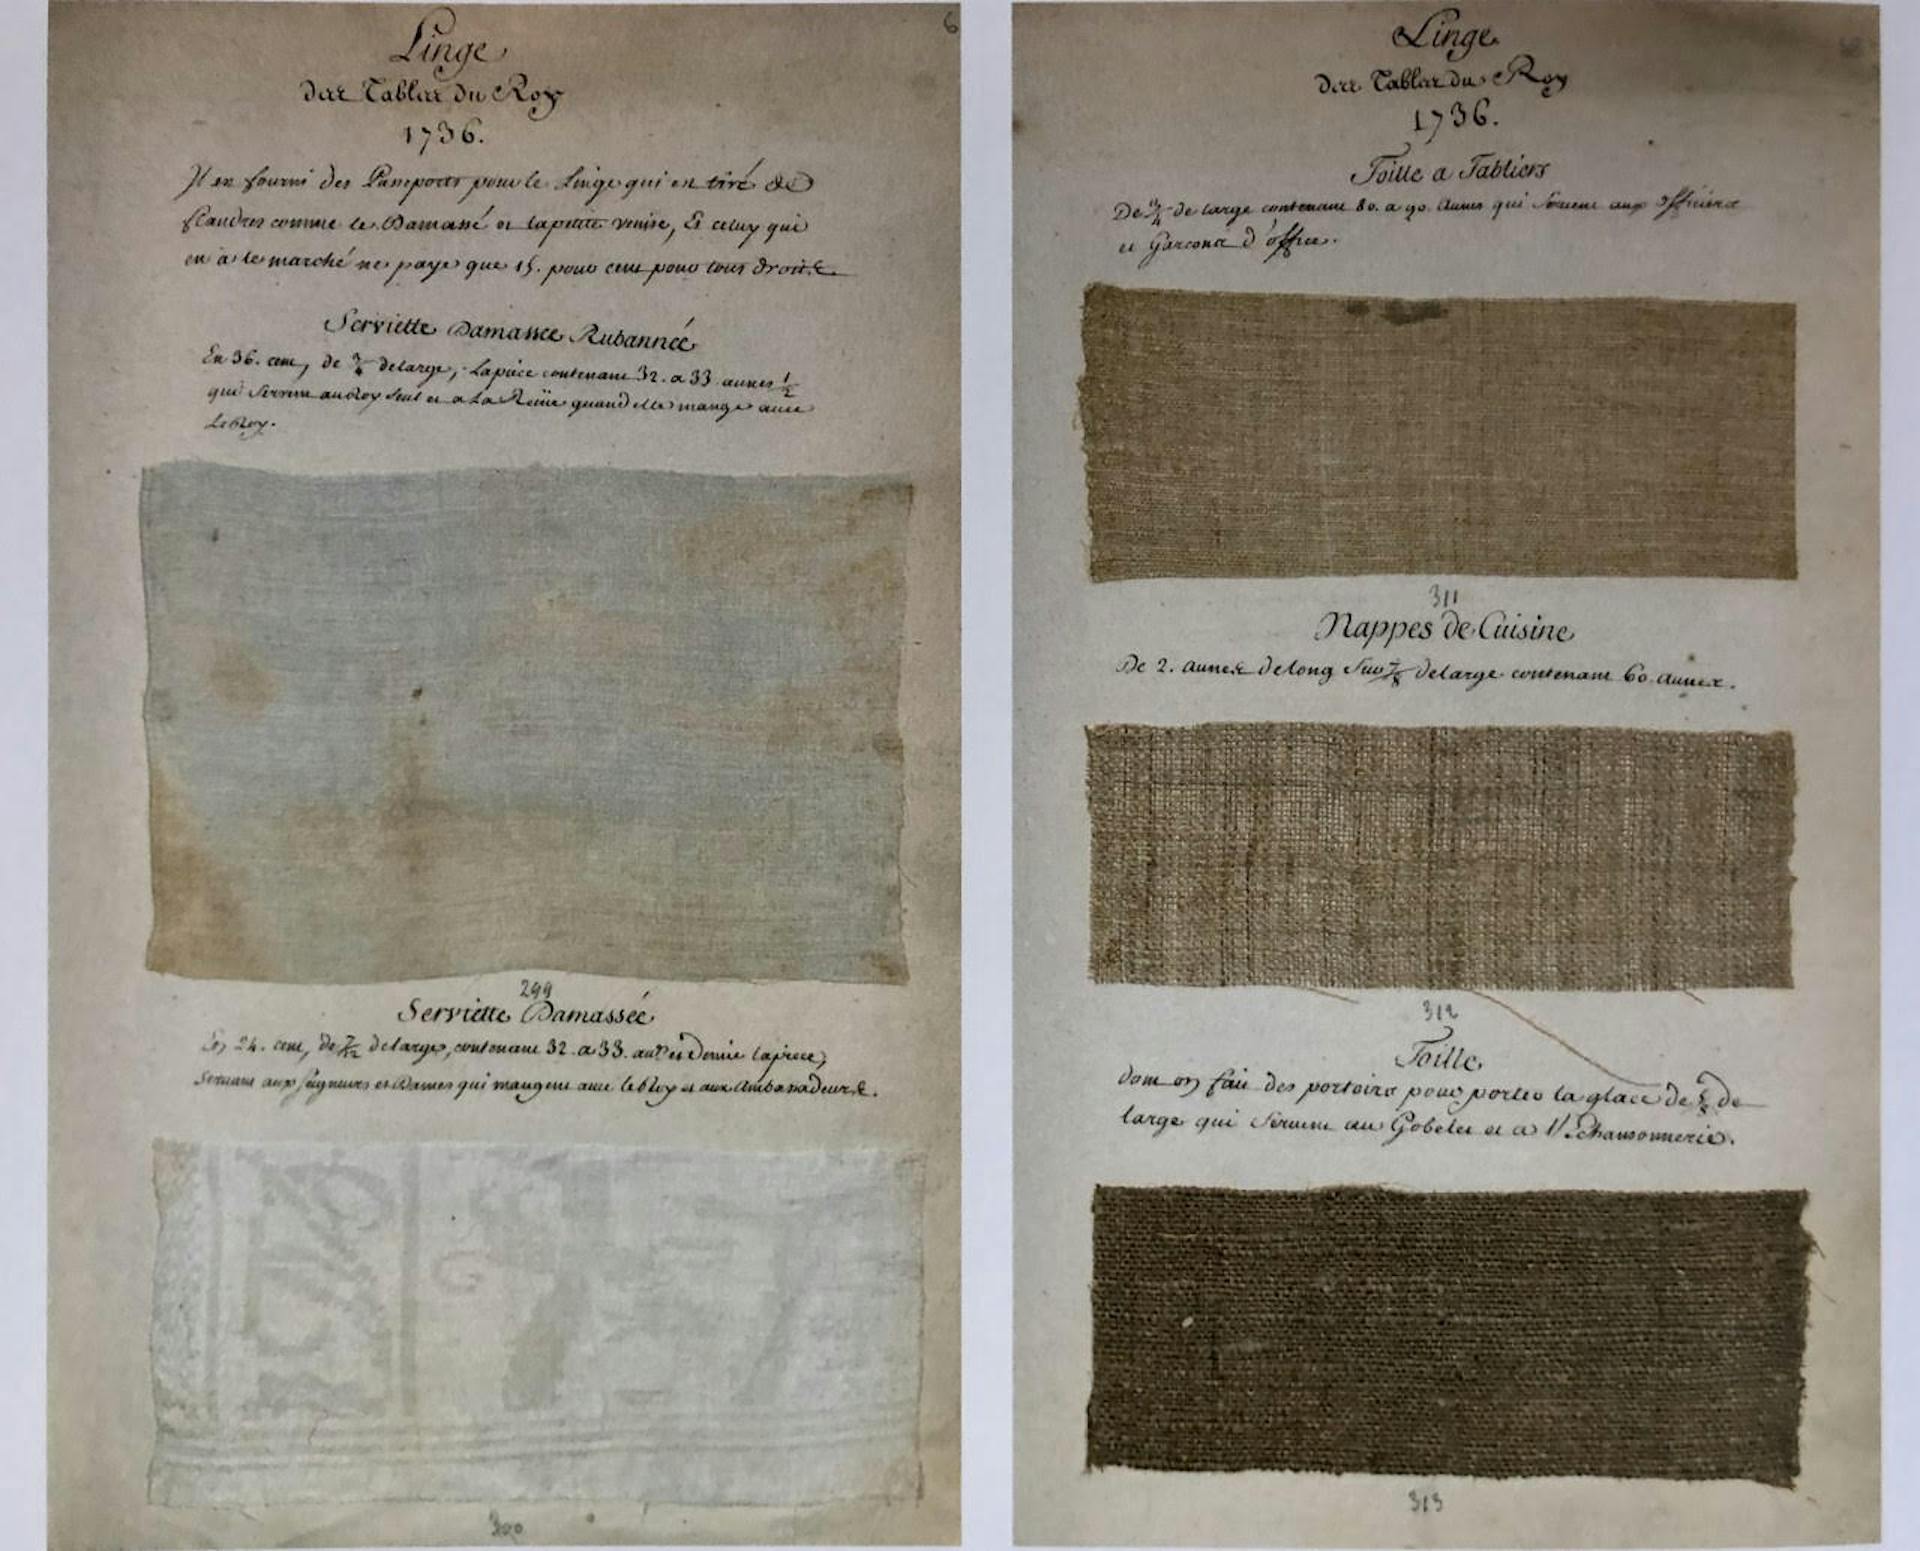 6
Linge
des Tables du Roy
1736.
Il est fourni des Passeports pour le Linge qui est tiré de
flandres comme le Damassé et la petite venise, Et celuy qui
en a le marché ne paye que 15. pour cent pour tous droits.
Serviette Damassée Rubannée
En 36. cent, de 3/4 de large, La piece contenant 32. a 33 aunes 1/2
qui servent au Roy seul et a La Reine quand elle mange avec
Le Roy.
299
Serviette Damassée
En 24. cent, de 7/12 de large, contenant 32. a 33. aunes et Demie la piece,
servant aux seigneurs et Dames qui mangent avec le Roy et aux Ambassadeurs.
300
Linge
des Tables du Roy
1736.
Toille a Tabliers
De de large contenant 80. a 90. Aunes qui servent aux officiers
et Garcons d'office.
311
Nappes de Cuisine
De 2. aunes de long sur 7/8 de large contenant 60. aunes.
312
Toille
dont on fait des portoirs pour porter la glace de de
large qui servent au Gobelet et a l'Echansonnerie.
313